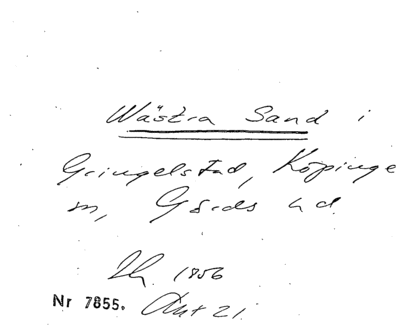 Wästra Sand i
Gringelstad, Köpinge
sn, Gärds hd.
Lh. 1856
Nr 7855. Akt 21.